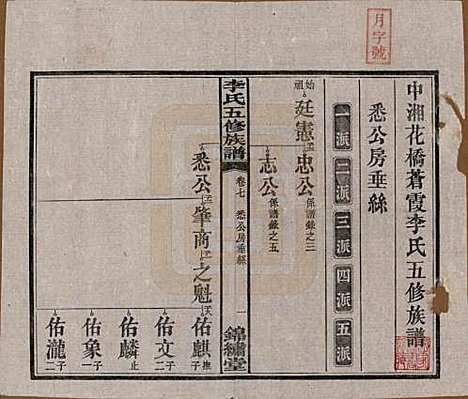 月字號
中湘花橋蒼霞李氏五修族譜
悉公房垂絲
一派 二派 三派 四派 五派
始祖 廷憲 忠公 係譜錄之三
志公 係譜錄之五
李氏五修族譜
卷七 悉公房垂絲 一
錦繡堂
悉公 肇商 之魁 佑麒
佑文 二子
佑麟 止
佑象 一子
佑瀧 二子